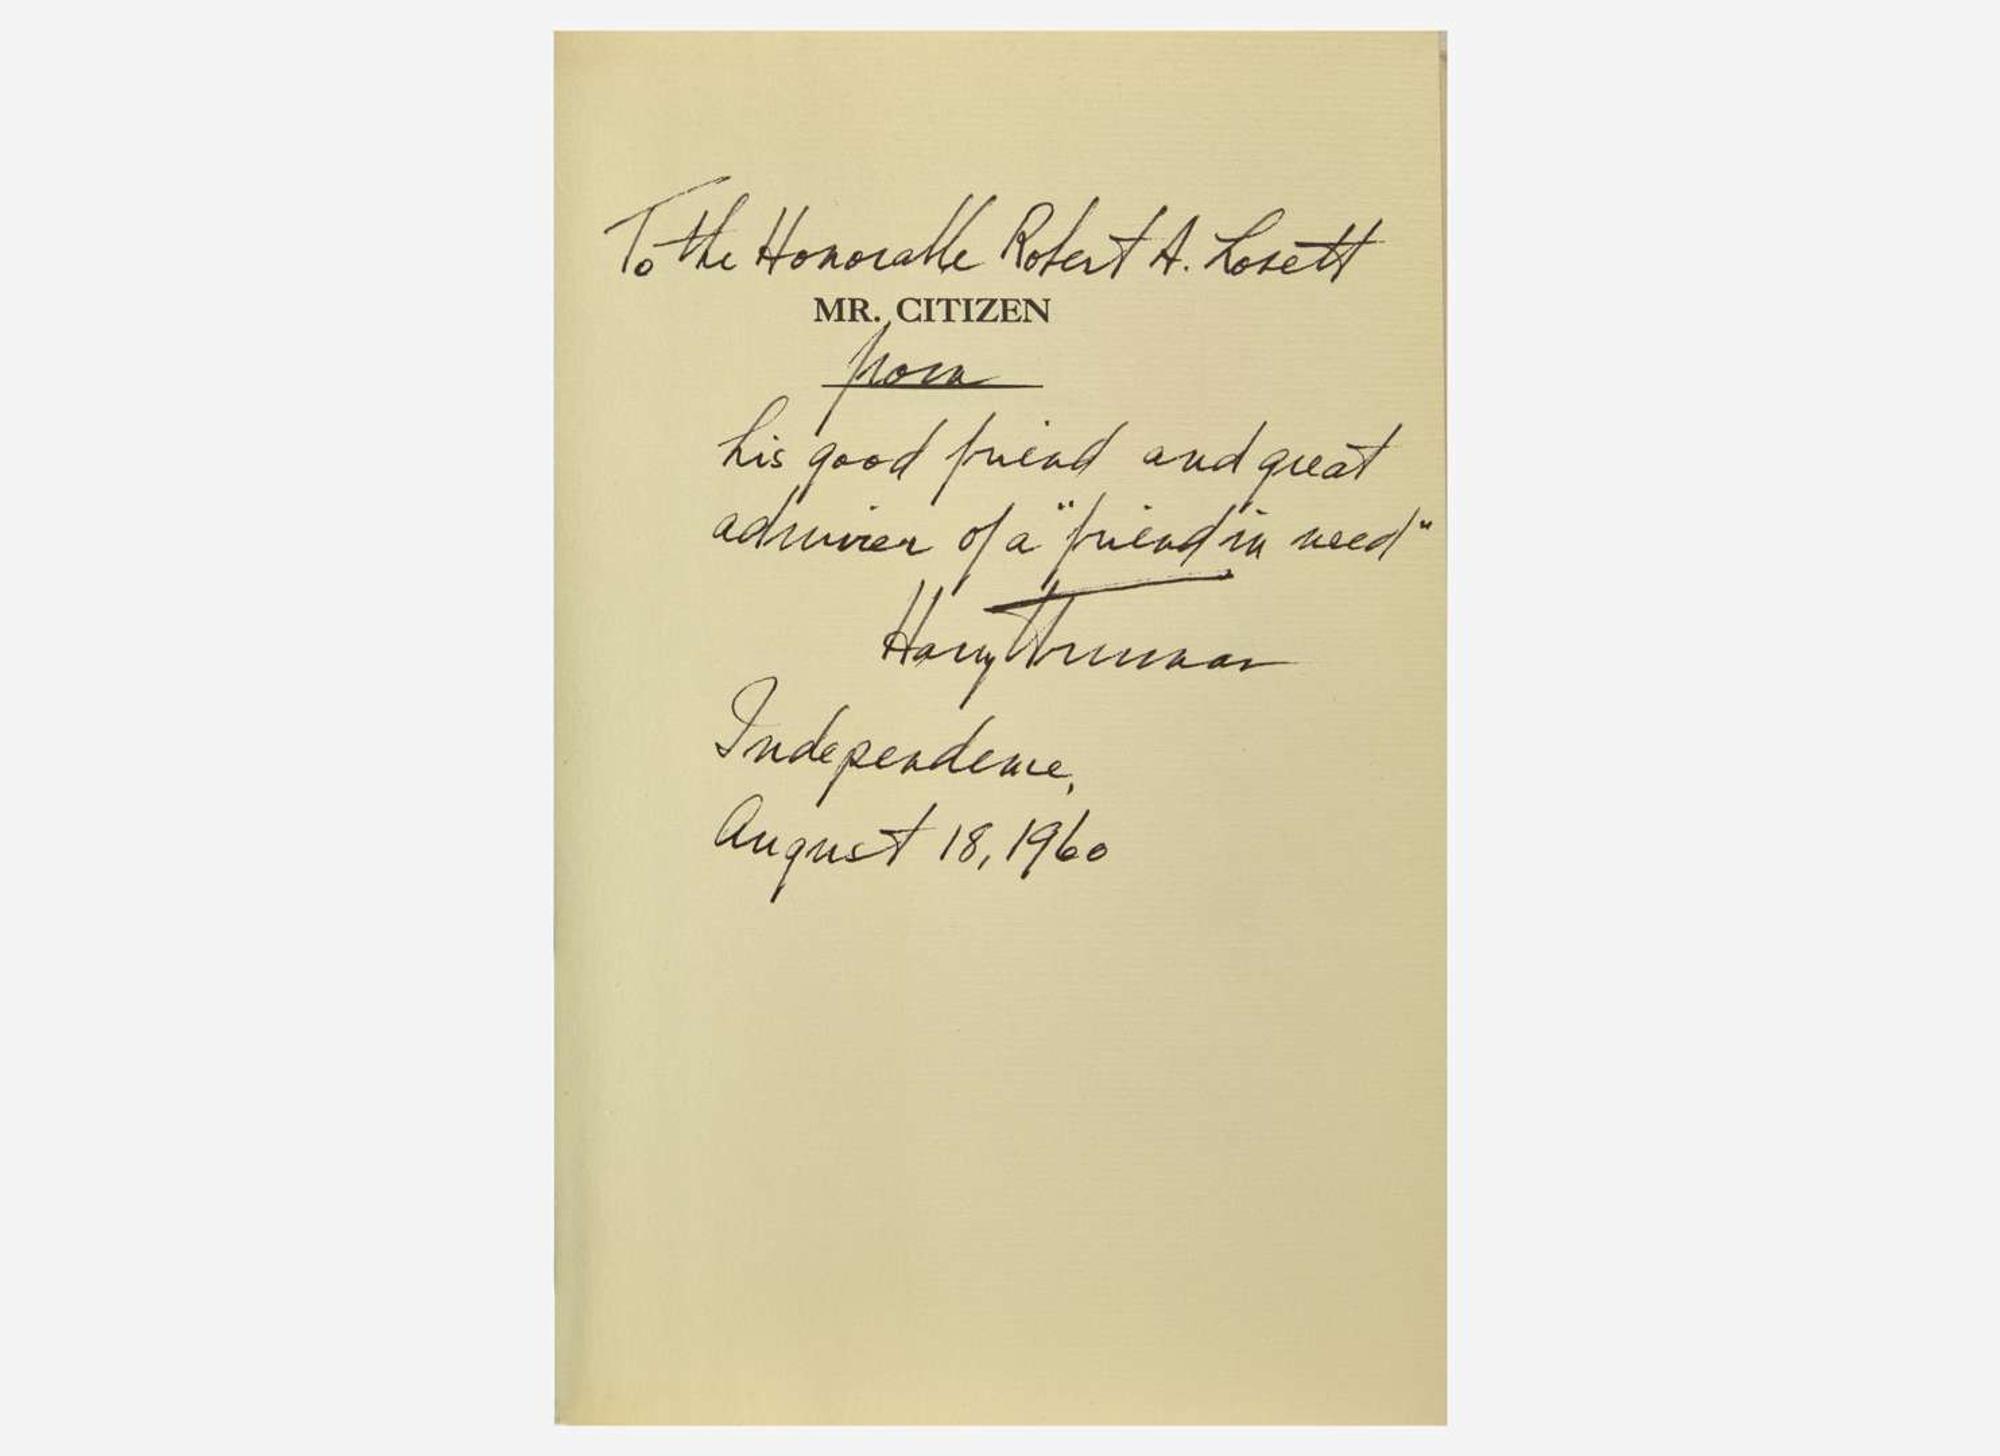 To the Honorable Robert A. Lovett
MR. CITIZEN
from
his good friend and great
admirer of a "friend in need"
Harry Truman
Independence,
August 18, 1960